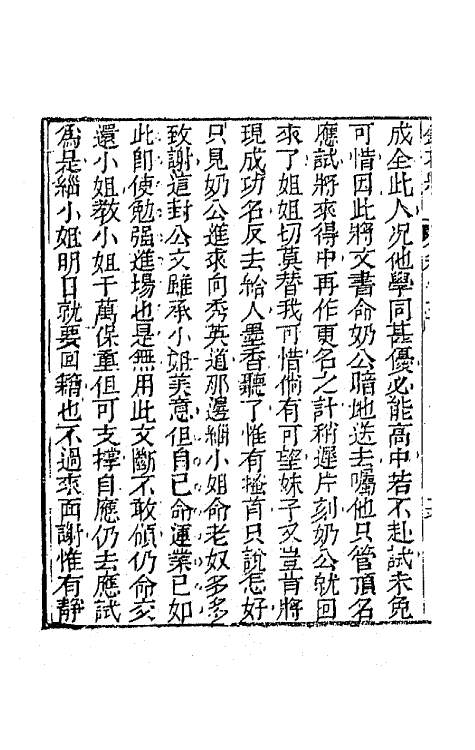 成全此人况他學問甚優必能高中若不赴試未免
可惜因此將文書命奶公暗地送去囑他只管頂名
應試將來得中再作更名之計稍遲片刻奶公就回
來了姐姐切莫替我可惜倘有可望妹子又豈肯將
現成功名反去給人墨香聽了惟有掩首只說怎好
只見奶公進來向秀英道那邊緇小姐命老奴多多
致謝這封公文雖承小姐美意但自己命運業已如
此即使勉强進場也是無用此文斷不敢領仍命交
還小姐教小姐千萬保重但可支撑自應仍去應試
為是緇小姐明日就要回籍也不過來面謝惟有靜